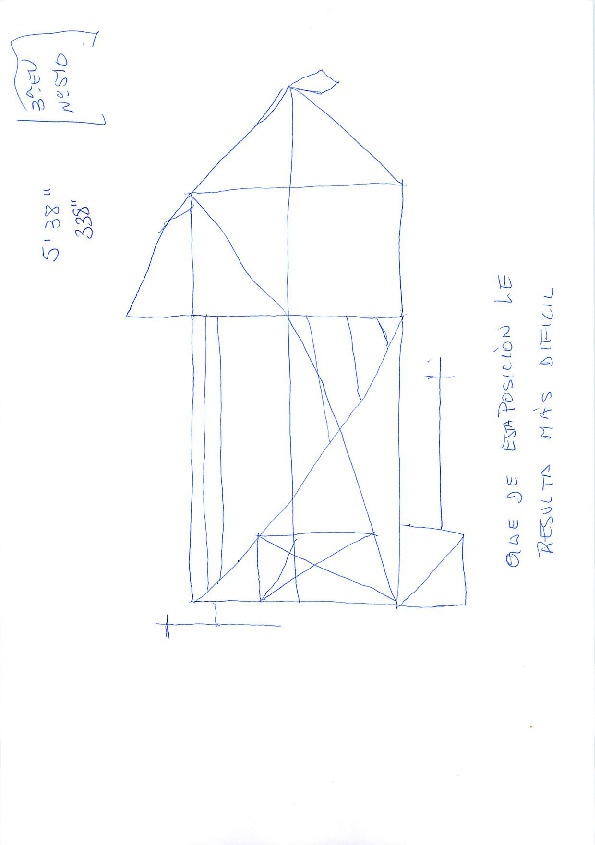 3ª EV
Nº 510
5' 38"
338"
QUE DE ESTA POSICIÓN LE
RESULTA MÁS DIFICIL